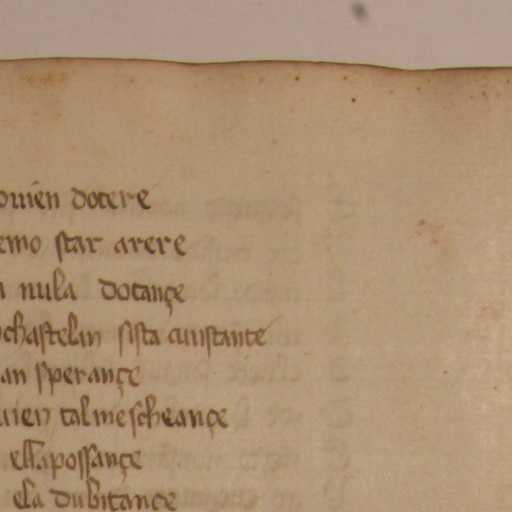 ouien dotere
emo star arere
nula dotançe
chastelan sista cuistante
an sperançe
uien talmescheançe
ellapossançe
ela dubitançe